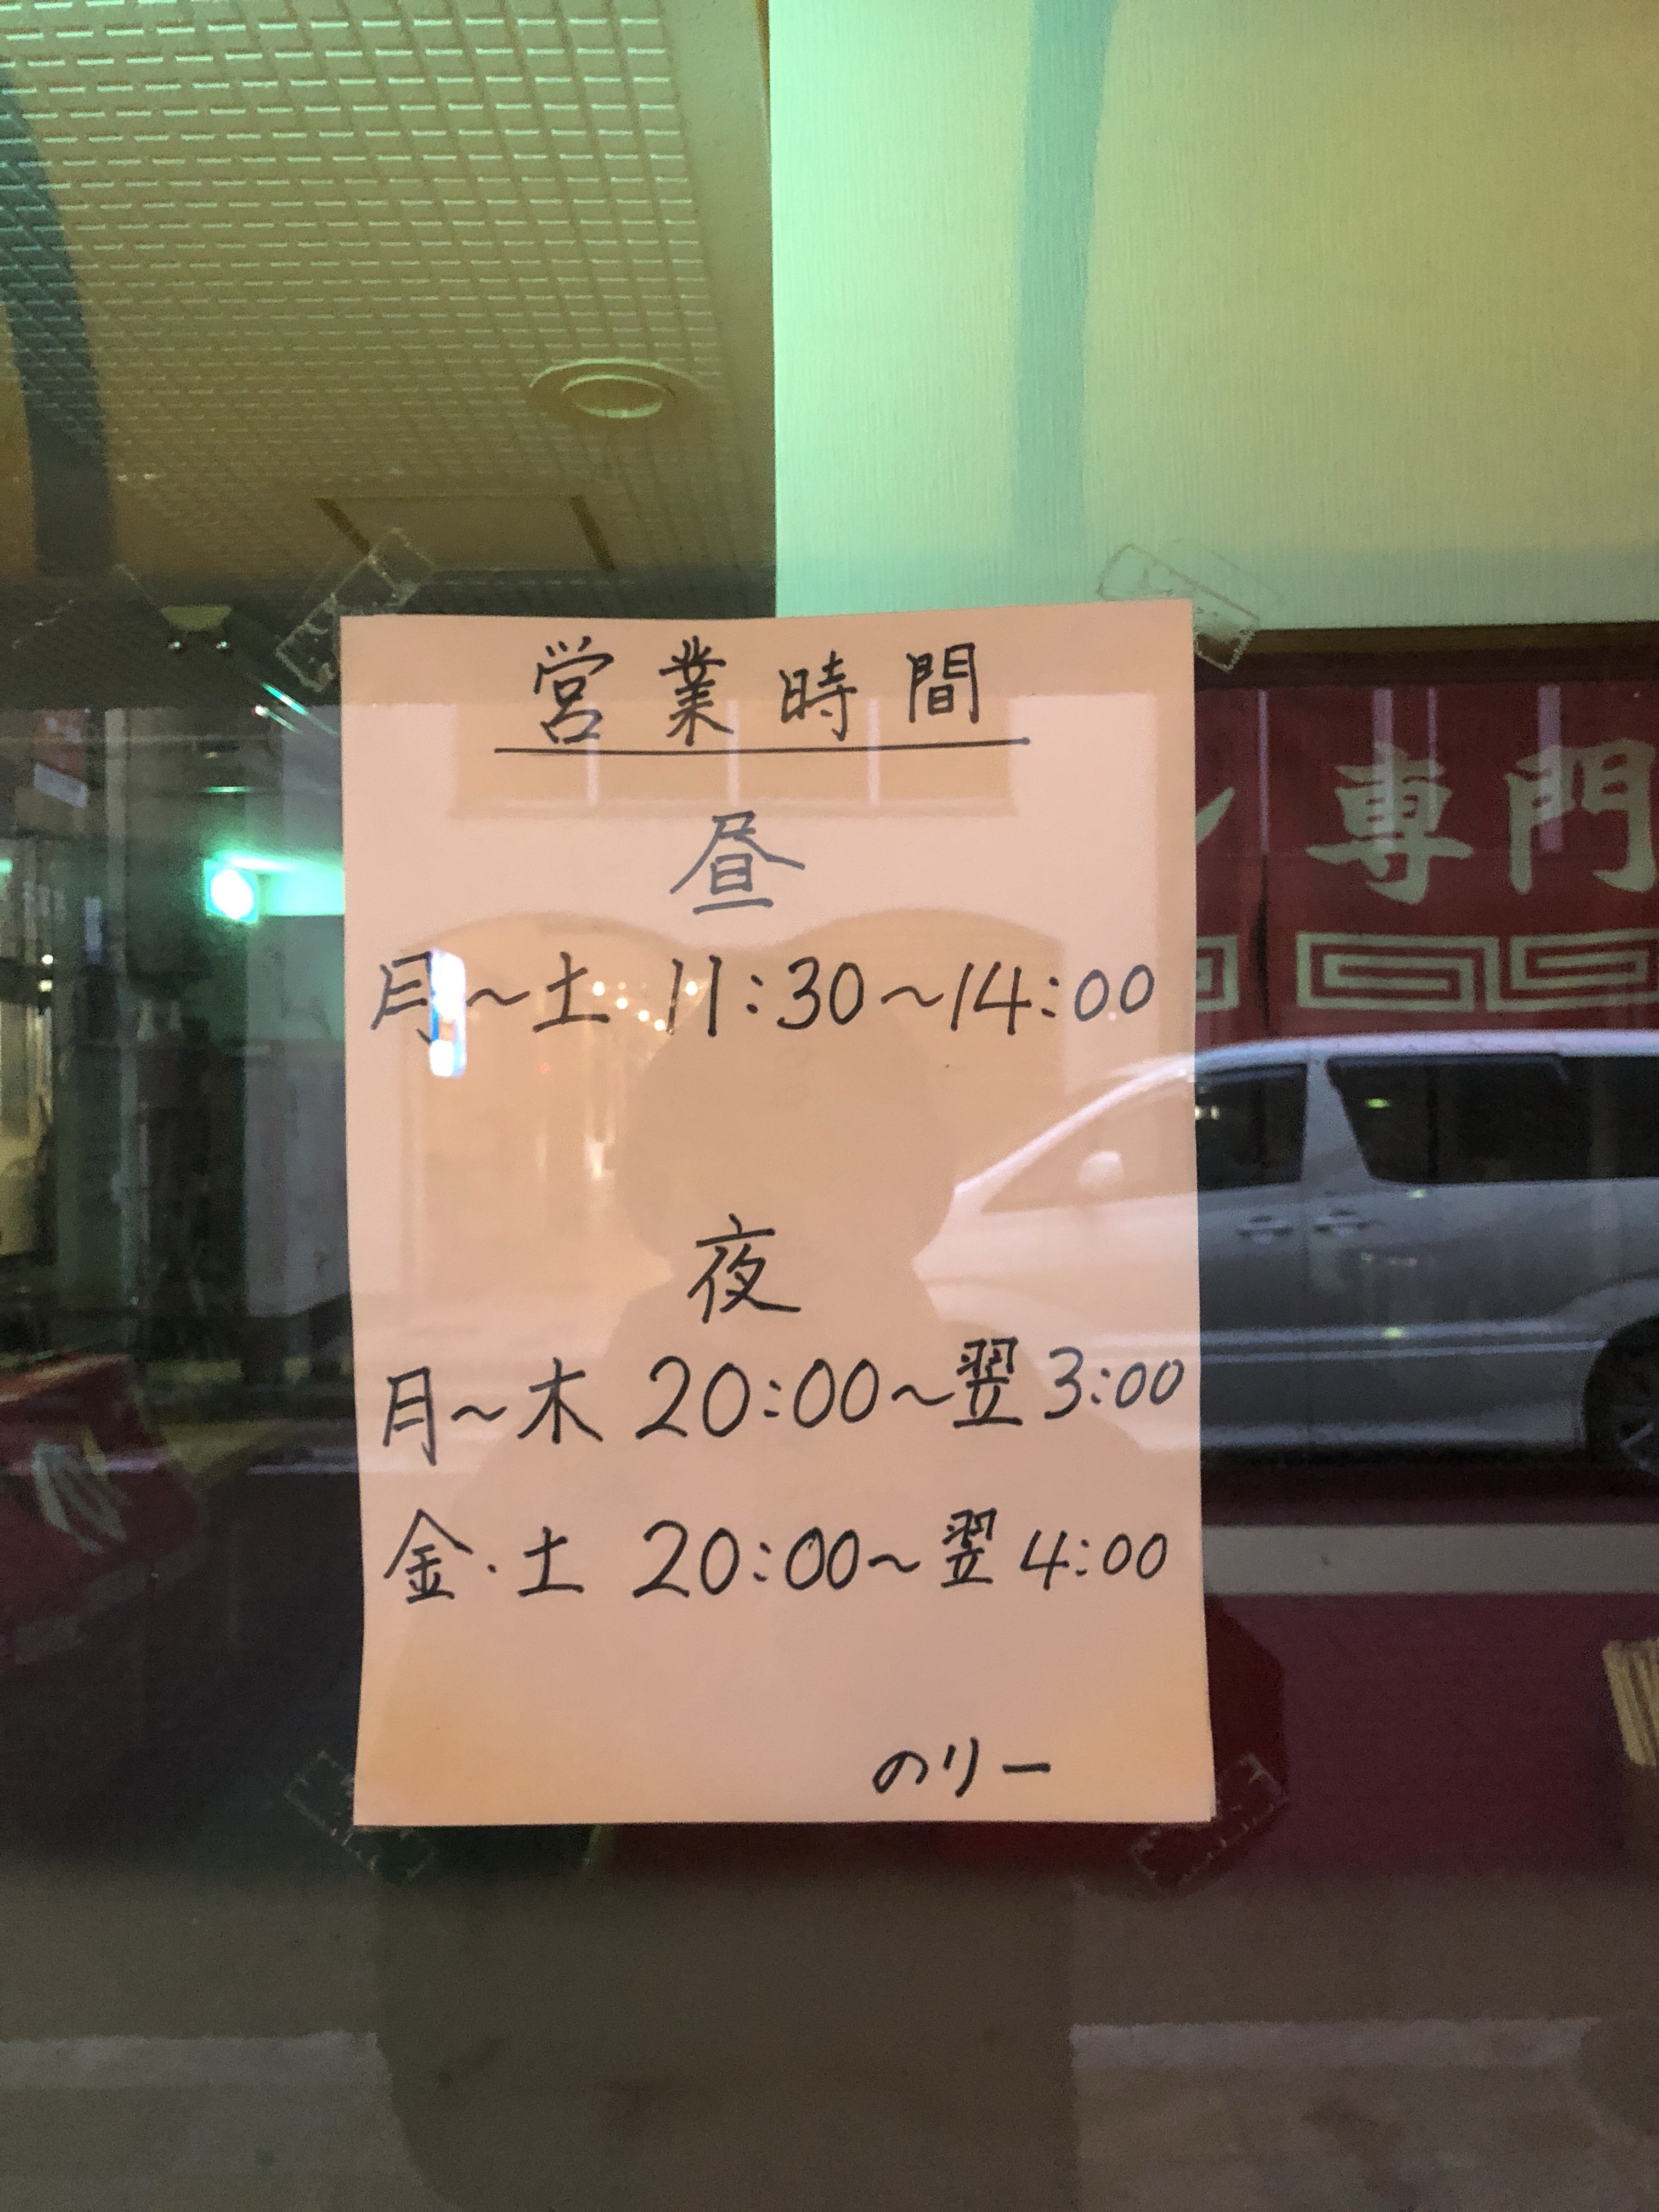 営業時間
昼
月〜土 11:30〜14:00
夜
月〜木 20:00〜翌3:00
金・土 20:00〜翌4:00
のりー
専門